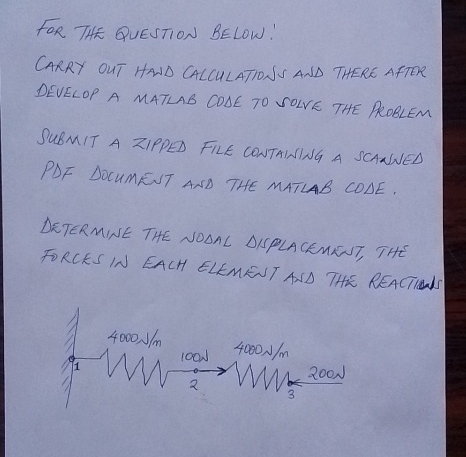 FOR THE QUESTION BELOW:
CARRY OUT HAND CALCULATIONS AND THERE AFTER
DEVELOP A MATLAB CODE TO SOLVE THE PROBLEM
SUBMIT A ZIPPED FILE CONTAINING A SCANNED
PDF DOCUMENT AND THE MATLAB CODE.
DETERMINE THE NODAL DISPLACEMENT, THE
FORCES IN EACH ELEMENT AND THE REACTIONS
4000N/m 100N 4000N/m 200N
1 2 3